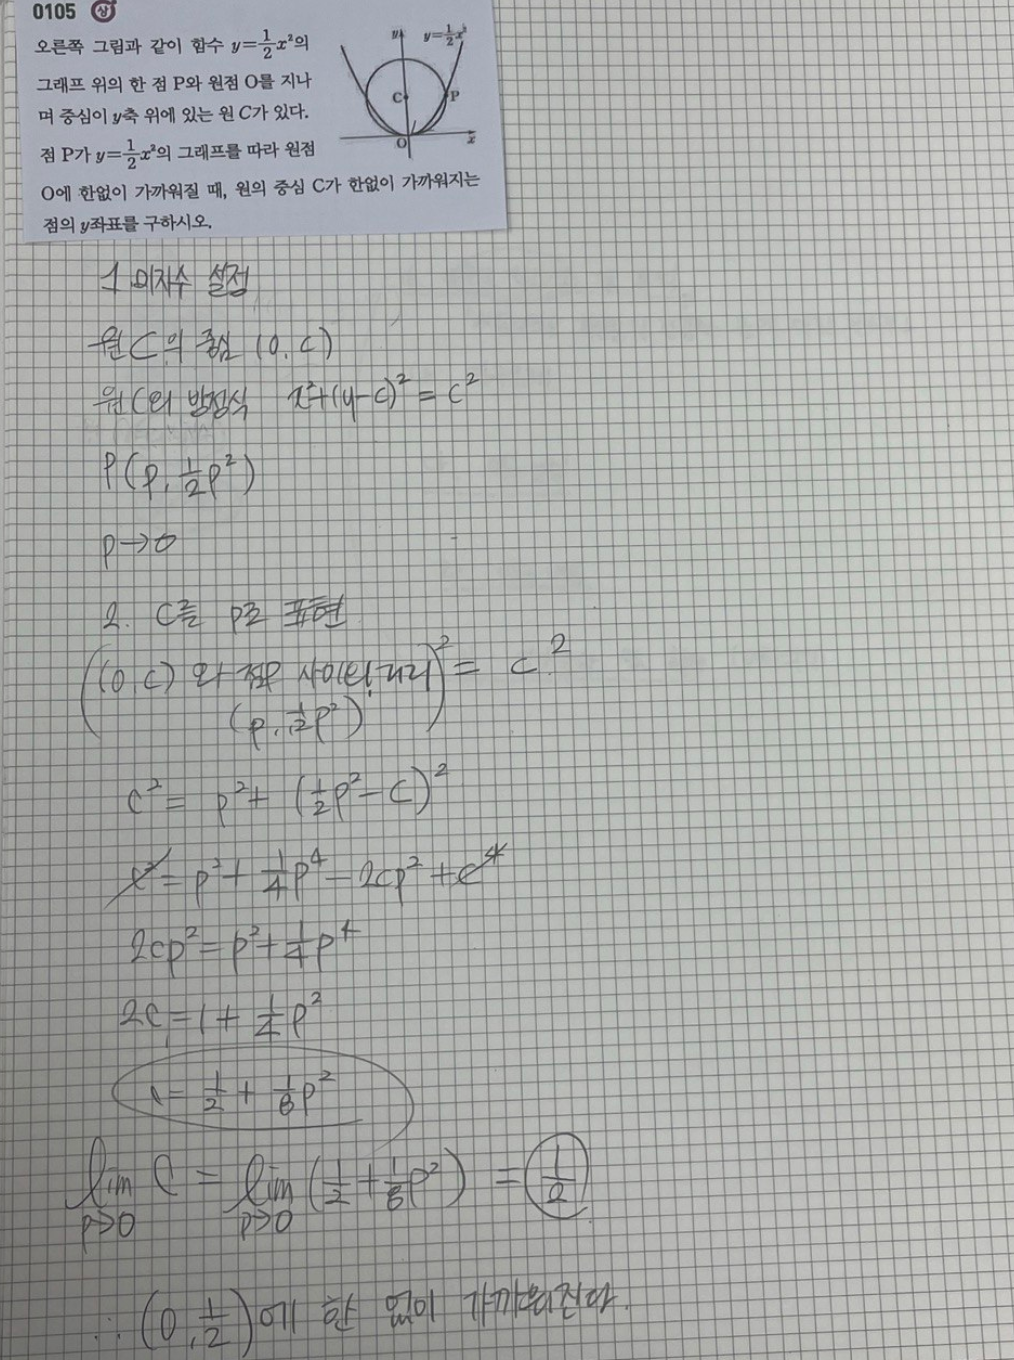 0105 상
오른쪽 그림과 같이 함수 y=1/2x²의
그래프 위의 한 점 P와 원점 O를 지나
며 중심이 y축 위에 있는 원 C가 있다.
점 P가 y=1/2x²의 그래프를 따라 원점
O에 한없이 가까워질 때, 원의 중심 C가 한없이 가까워지는
점의 y좌표를 구하시오.
y y=1/2x²
C P
O x
1 미지수 설정
원 C의 중심 (0, c)
원 C의 방정식 x²+(y-c)²=c²
P(p, 1/2p²)
p→0
2. C를 p로 표현
((0, c)와 점P 사이의 거리)²=c²
(p, 1/2p²)
c²=p²+(1/2p²-c)²
c²=p²+1/4p⁴-2cp²+c⁴
2cp²=p²+1/4p⁴
2c=1+1/4p²
c=1/2+1/8p²
lim p→0 C = lim p→0 (1/2+1/8p²) = 1/2
∴ (0, 1/2)에 한 없이 가까워진다.